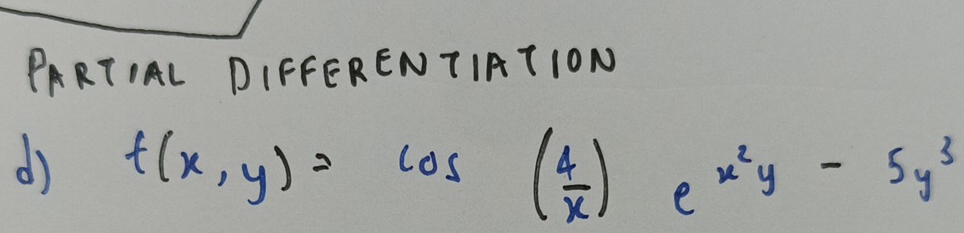 PARTIAL DIFFERENTIATION
d) f(x,y) = cos (4/x) e^x²y - 5y³